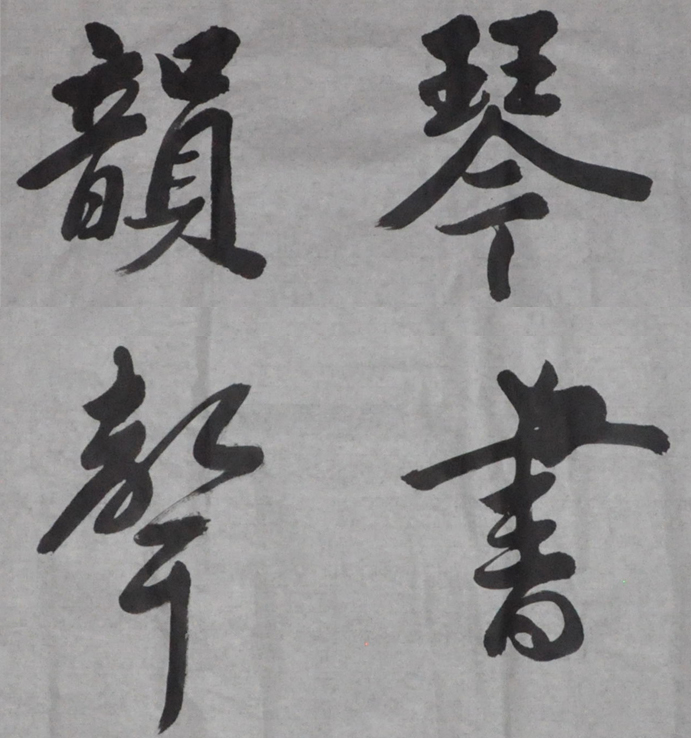 琴韻
書聲